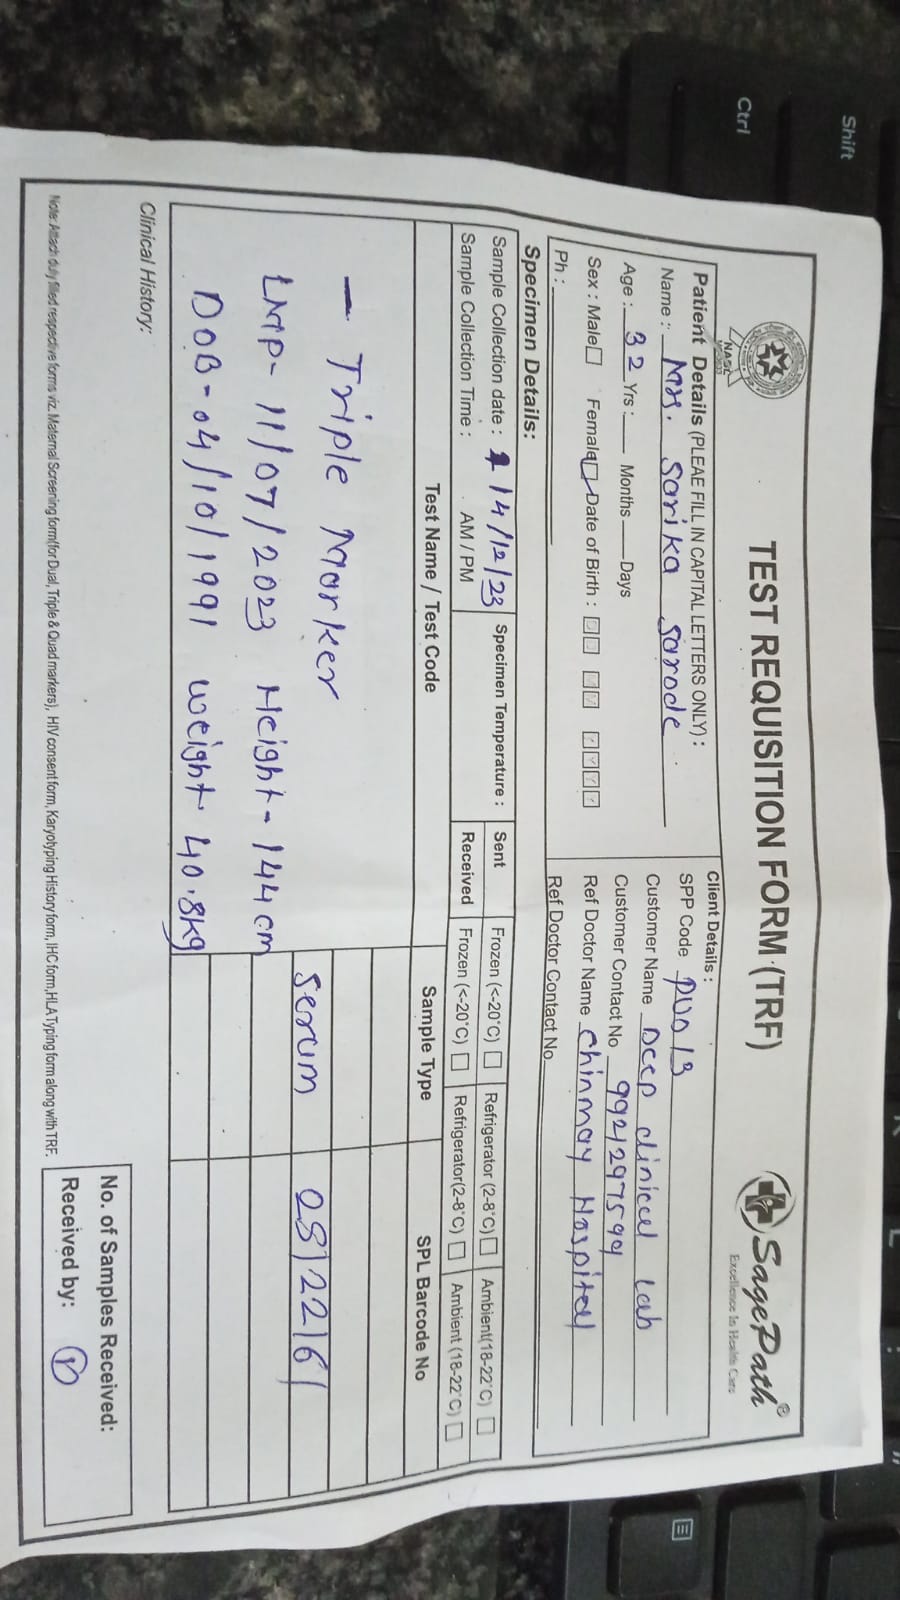 TEST REQUISITION FORM (TRF)
SagePath®
Excellence In Health Care
NABL
Patient Details (PLEAE FILL IN CAPITAL LETTERS ONLY) :
Name : Mrs. Sarika Sarode
Age : 32 Yrs : Months Days
Sex : Male Female Date of Birth : Y Y Y Y
Ph :
Client Details :
SPP Code PU013
Customer Name Deep clinical lab
Customer Contact No
Ref Doctor Name Chinmay Hospital
Ref Doctor Contact No
Specimen Details:
Sample Collection date : 14/12/23
Sample Collection Time : AM / PM
Specimen Temperature :
Sent Frozen (<-20°C) Refrigerator (2-8°C) Ambient(18-22°C)
Received Frozen (<-20°C) Refrigerator(2-8°C) Ambient (18-22°C)
Test Name / Test Code Sample Type SPL Barcode No
- Triple Marker serum
LMP- 11/07/2023 Height - 144cm
DOB - 04/10/1991 weight 40.8Kg
Clinical History:
No. of Samples Received:
Received by:
Note: Attach duly filled respective forms viz. Maternal Screening form(for Dual, Triple & Quad markers), HIV consent form, Karyotyping History form, IHC form, HLA Typing form along with TRF.
Shift
Ctrl